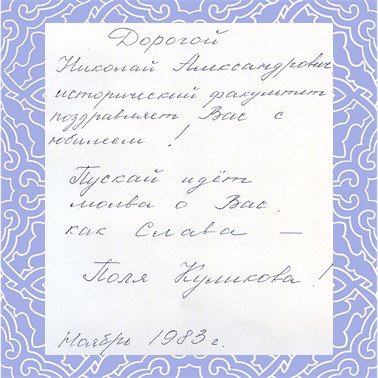 Дорогой
Николай Александрович
исторический факультет
поздравляет Вас с
юбилеем!
Пускай идёт
молва о Вас
как Слава —
Поля Куликова!
Ноябрь 1983 г.